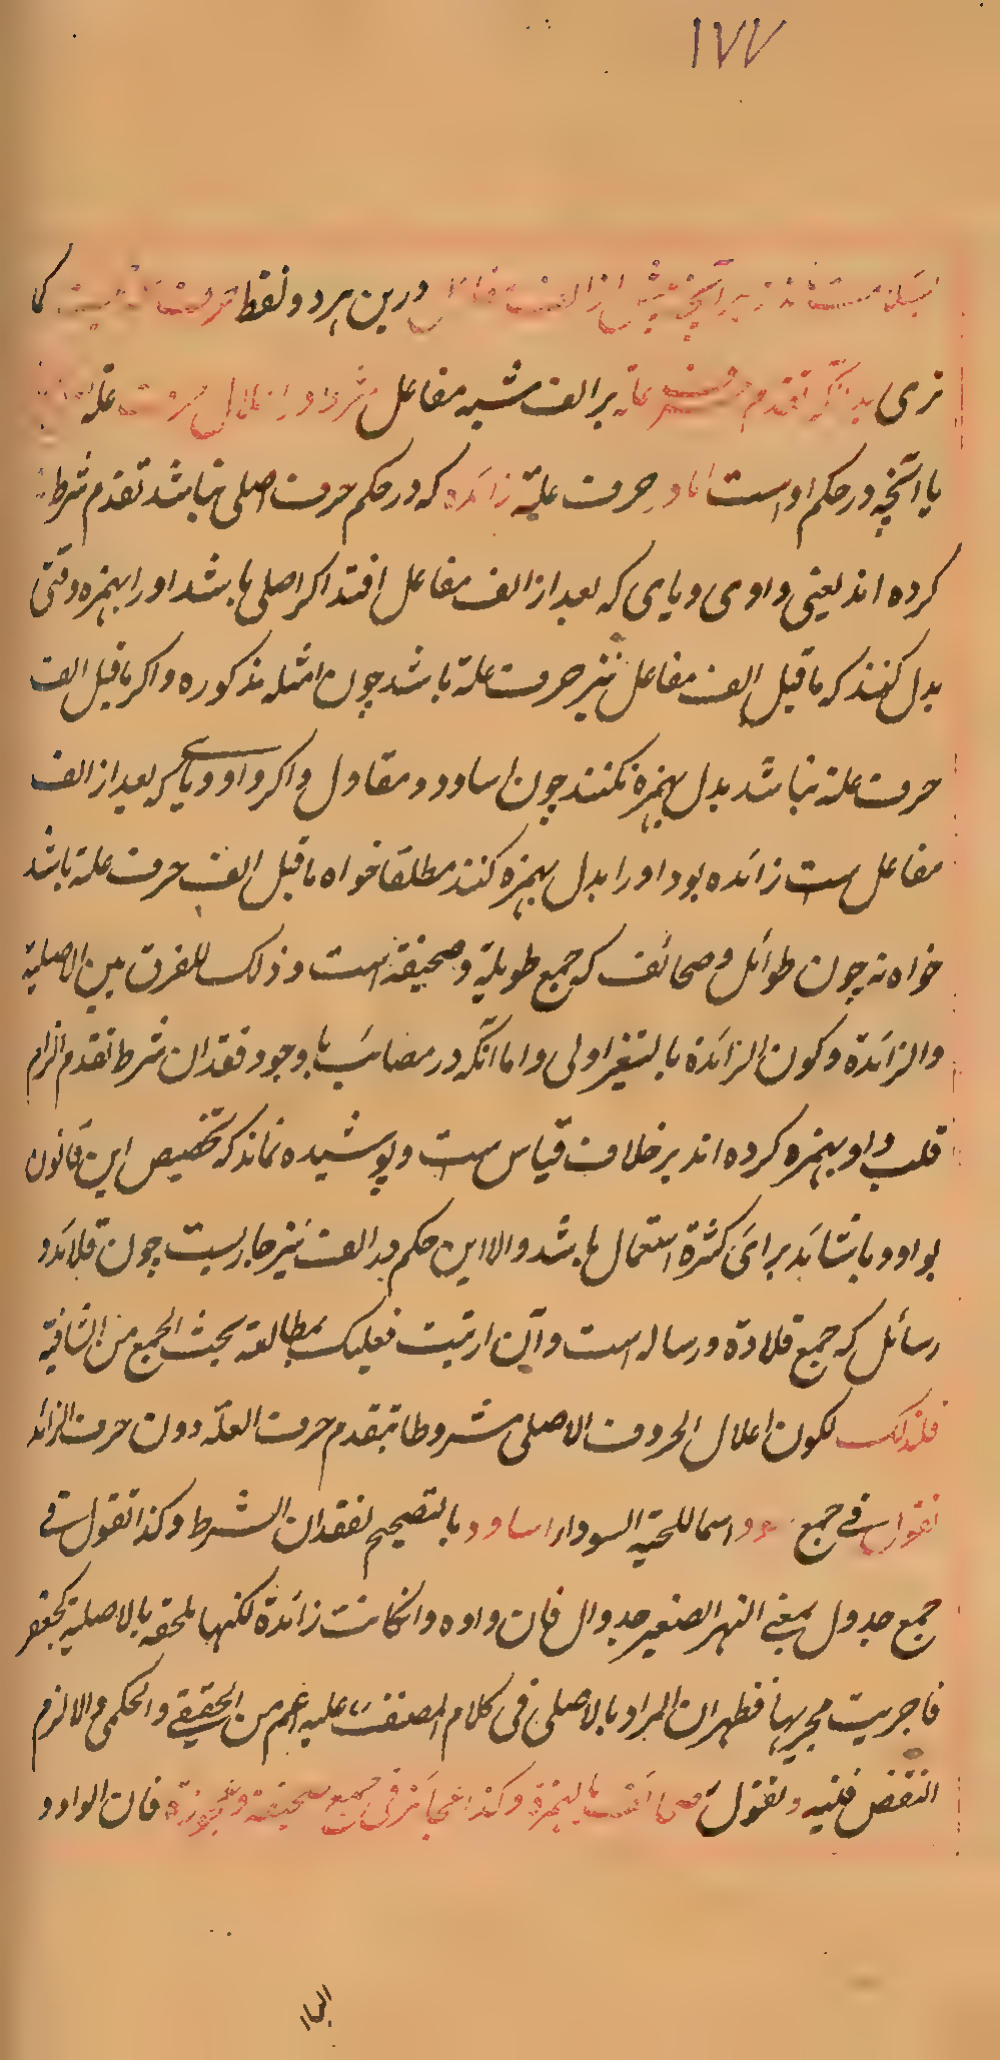 ١٧٧
درین هر دو لفظ حرف کما
تری بدانکه تقدم حرف علة بر الف مشبه مفاعل علة
یا آنچه در حکم اوست اما در حرف علة زائده که در حکم حرف اصلی نباشد تقدم شرط
کرده اند یعنی واوی و یای که بعد از الف مفاعل افتد اکر اصلی باشد او را بهمزه وقتی
بدل کنند که ما قبل الف مفاعل نیز حرف علة باشد چون امثله مذکوره و اکر ما قبل الف
حرف علة نباشد بدل بهمزه نکنند چون اساود و مقاول و اکر واو و یای که بعد از الف
مفاعل ست زائده بود او را بدل بهمزه کنند مطلقا خواه ما قبل الف حرف علة باشد
خواه نه چون طوائل و صحائف که جمع طویلة و صحیفة است و ذلک للفرق بین الاصلیة
والزائدة وکون الزائدة بالتغیر اولی و اما آنکه در مصائب با وجود فقدان شرط تقدم الزام
قلب واو بهمزه کرده اند بر خلاف قیاس ست و پوشیده نماند که تخصیص این قانون
بواو و یا شاید برای کثرة استعمال باشد والا این حکم در الف نیز جاریست چون قلائد و
رسائل که جمع قلادة و رساله است و ان ارتبت فعلیک بمطالعة بحث الجمع من الشافیة
فلذلک لکون اعلال الحروف الاصلی مشروطا بتقدم حرف العلة دون حرف الزائد
نقول فی جمع اسود اسما للحیة السوداء اساود بالتصحیح لفقدان الشرط وکذا تقول فی
جمع جدول بمعنی النهر الصغیر جداول فان واوه وان کانت زائدة لکنها ملحقة بالاصلیة کجعفر
فاجریت مجریها فظهر ان المراد بالاصلی فی کلام المصنف علیه اعم من الحقیقی والحکمی والا لزم
النقض فلنیه و نقول صحائف بالهمزة وکذا عجائز فی جمع صحیفة وعجوزة فان الواو و
الیاء